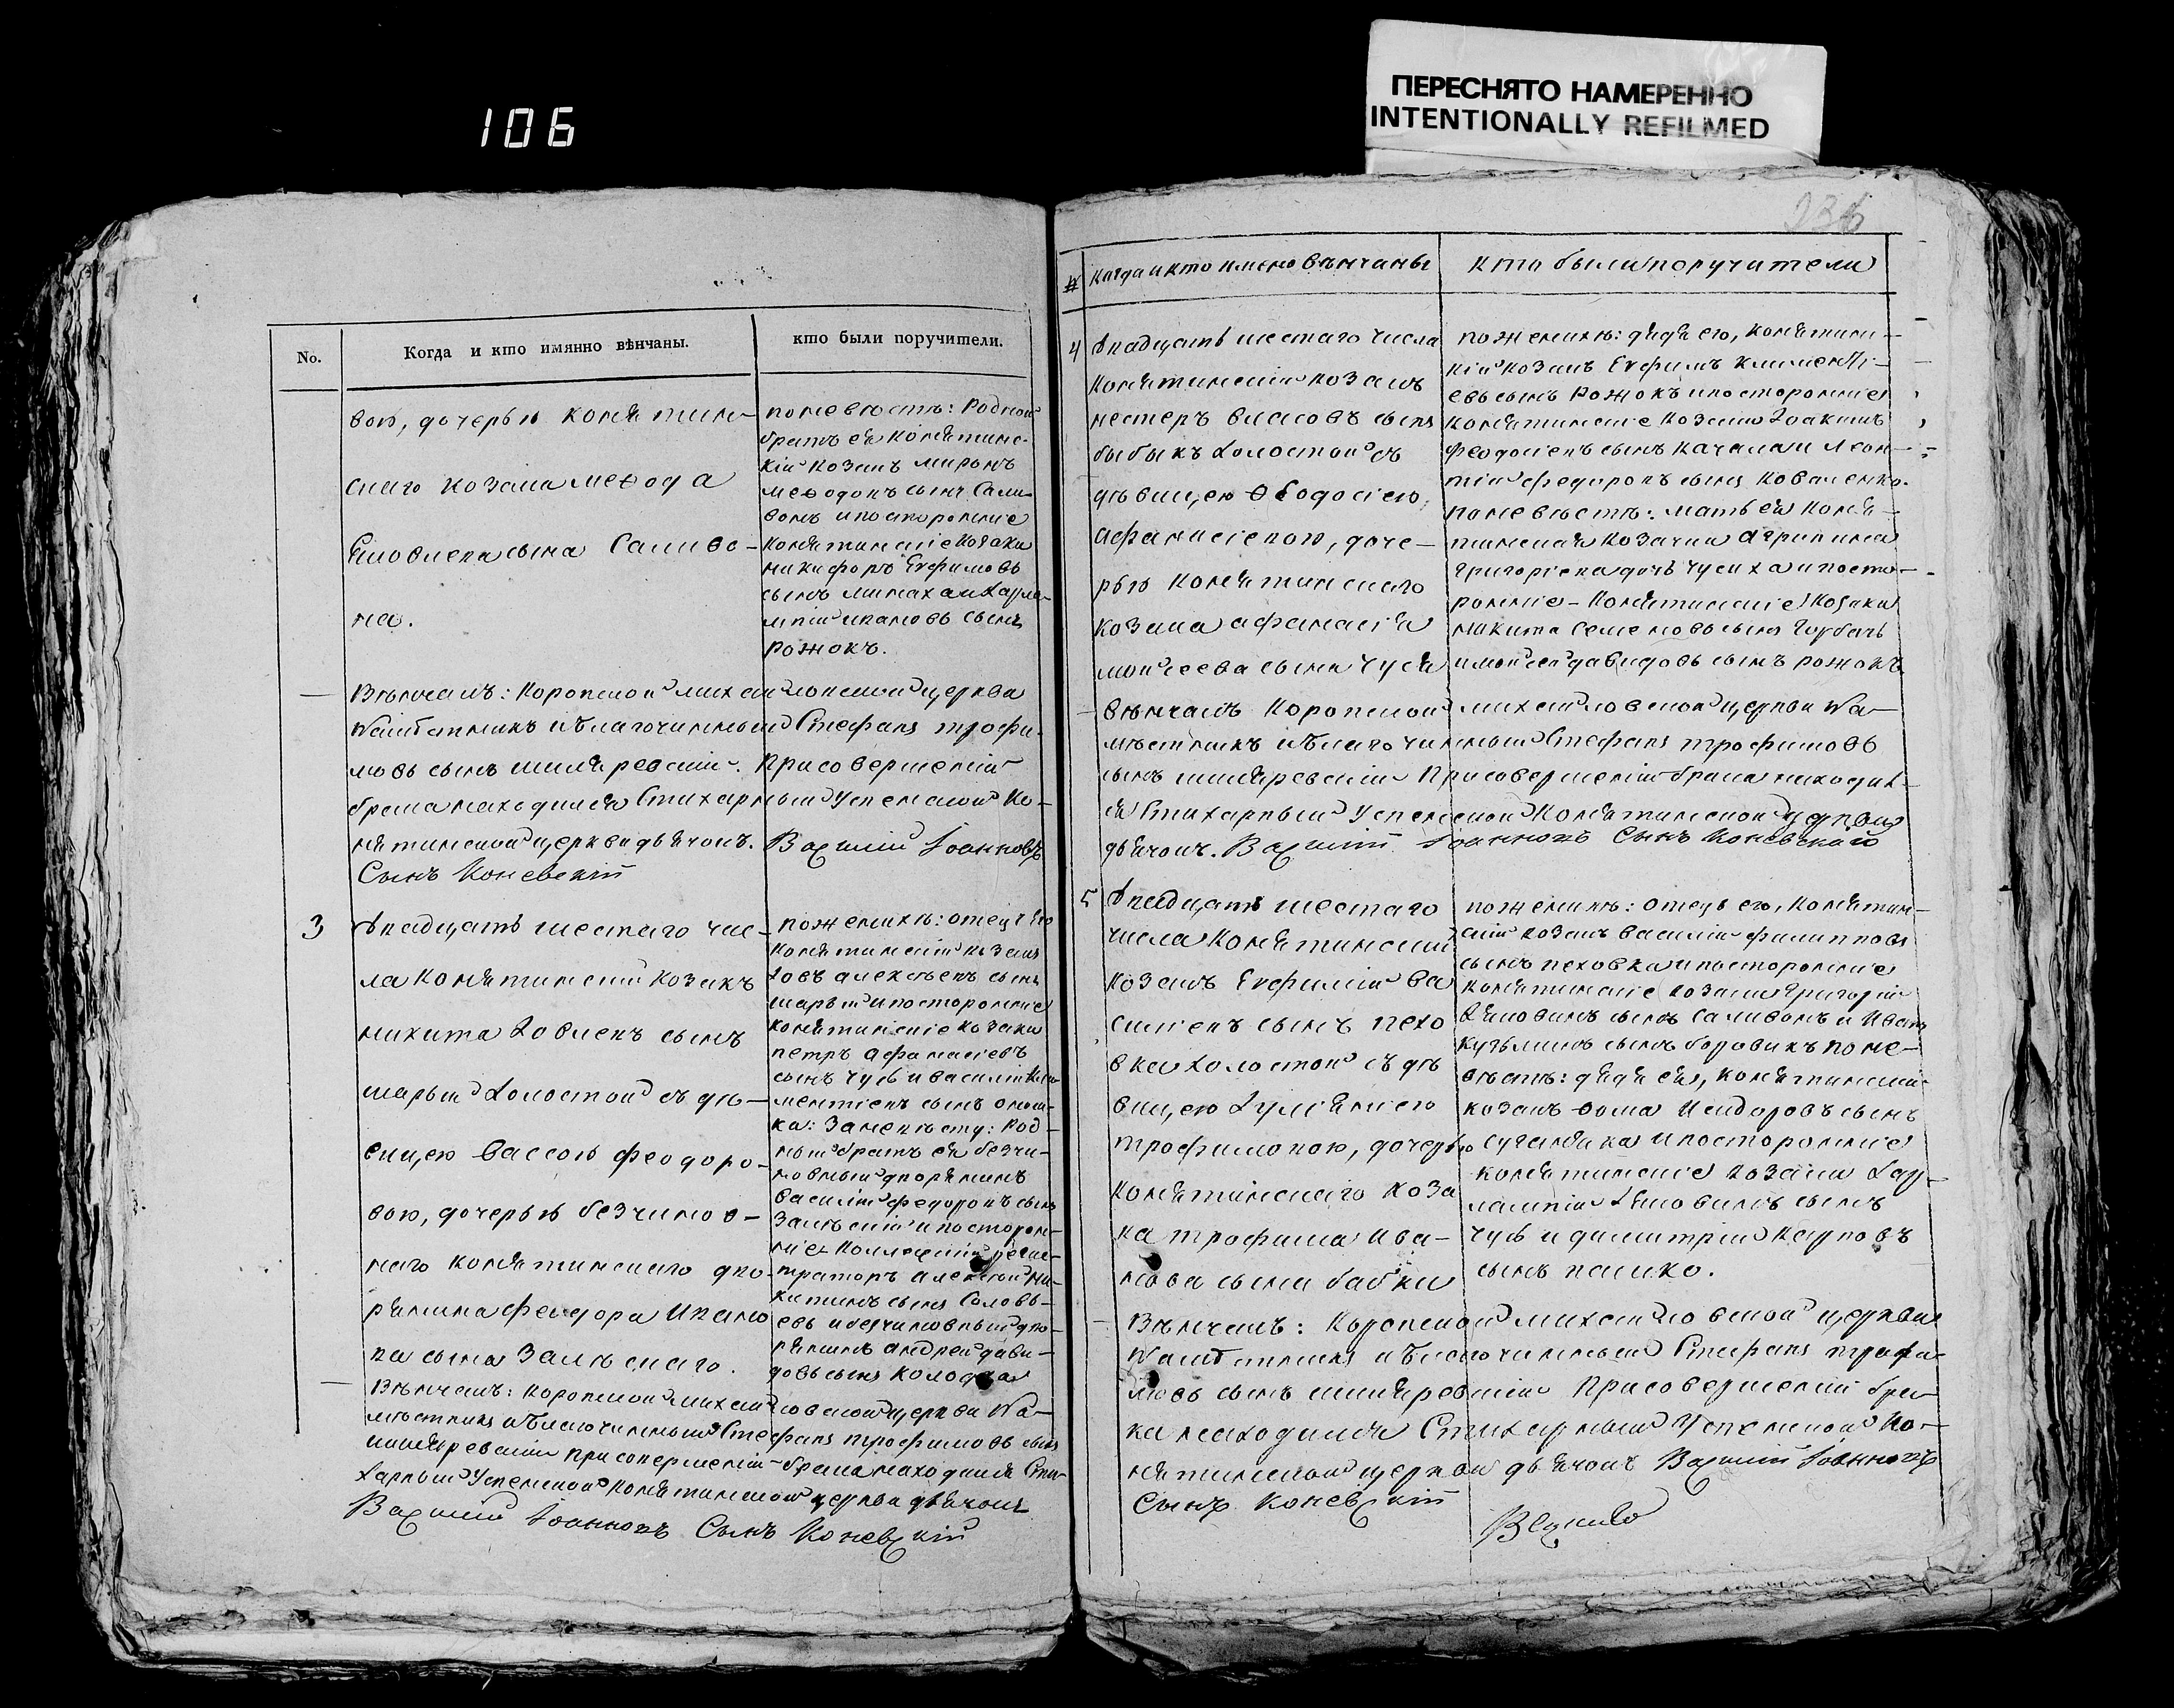 106
ПЕРЕСНЯТО НАМЕРЕННО
INTENTIONALLY REFILMED
No.
Когда и кто имянно вѣнчаны.
кто были поручители.
вою, дочерью конятин-
скаго козака меѳода
Яковлева сына Саливо-
на.
поневѣстѣ: Родной
братъ ея конятинс-
кій козакъ миронъ
меѳодовъ сынъ Сали-
вонъ и посторонніе
Конятинскіе Козаки
никифоръ Евфимовъ
сынъ
Ивановъ сынъ
Рожокъ.
Вѣнчалъ: Коропской михайловской церкви
Намѣстникъ и благочинный Стефанъ трофи-
мовъ сынъ шкляревскій. При совершеніи
брака находился Стихарный Успенской Ко-
нятинской церкви дьячокъ. Василій Іоанновъ
Сынъ Коневскій
3
двадцать шестаго чис-
ла Конятинскій Козакъ
никита Іовлевъ сынъ
шарый холостой съ дѣ-
вицею Вассою феодоро-
вою, дочерью безчинов-
наго конятинскаго дво-
рянина феодора Ивано
ва сына Залѣскаго.
поженихѣ: отецъ его
конятинскій козакъ
Іовъ алексѣевъ сынъ
шарый и посторонніе
конятинскіе козаки
петръ афанасіевъ
сынъ чусь и василій Кли-
ментіевъ сынъ
ка: Заневѣсту: Род-
ный братъ ея безчи-
новный дворянинъ
василій федоровъ сынъ
Залѣскій и посторон-
ніе Коллежскій регис-
траторъ алексѣй ни-
китинъ сынъ Соловь-
евъ и безчиновный дво-
рянинъ андрей дави-
довъ сынъ колодка
Вѣнчалъ: Коропской михайловской церкви На-
мѣстникъ и благочинный Стефанъ трофимовъ сынъ
шкляревскій при совершеніи брака находился Сти-
харный Успенской Конятинской церкви дьячокъ
Василій Іоанновъ Сынъ Коневскій
236
№
Когда и кто имено вѣнчаны
кто были поручители
4
двадцать шестаго числа
Конятинскій козакъ
нестеръ власовъ сынъ
быбыкъ холостой съ
дѣвицею Ѳеодосіею
афанасіевою, доче-
рью конятинскаго
козака афанасія
мойсеева сына чуся
поженихѣ: дядя его, конятинс-
кій козакъ Евфимъ климентi-
евъ сынъ Рожокъ и посторонніе
конятинскіе козаки Іоакимъ
феодосіевъ сынъ качала и леон-
тій федоровъ сынъ коваленко.
поневѣстѣ: мать ея коня-
тинская козачка агрипина
григоріева дочь чусиха и посто-
ронніе - Конятинскіе козаки
никита Семеновъ сынъ горбачъ
и мойсей давидовъ сынъ рожокъ
Вѣнчалъ Коропской михайловской церкви На-
мѣстникъ и благочинный Стефанъ трофимовъ
сынъ шкляревскій При совершеніи брака находил-
ся Стихарный Успенской Конятинской церкви
дьячокъ. Василій Іоанновъ Сынъ Коневскій
5
двадцать шестаго
числа Конятинскій
козакъ Евфимій Ва
силіевъ сынъ пехо
вка холостой съ дѣ
вицею Іуліаніею
трофимовою, дочерью
конятинскаго коза
ка трофима Ива-
нова сына бабки
поженихѣ: отецъ его, конятин-
скій козакъ василій филипповъ
сынъ пеховка и посторонніе
конятинскіе козаки григорій
Яковлевъ сынъ Саливонъ и Иванъ
кузьминъ сынъ боровикъ поне-
вѣстѣ: дядя ея, конятинскій
козакъ ѳома Исидоровъ сынъ
и посторонніе
конятинскіе козаки хар-
лампій Яковлевъ сынъ
чусь и димитрій карповъ
сынъ пашко.
Вѣнчалъ: Коропской михайловской церкви
Намѣстникъ и благочинный Стефанъ трофи-
мовъ сынъ шкляревскій При совершеніи бра-
ка находился Стихарный Успенской Ко-
нятинской церкви дьячокъ Василій Іоанновъ
Сынъ Коневскій